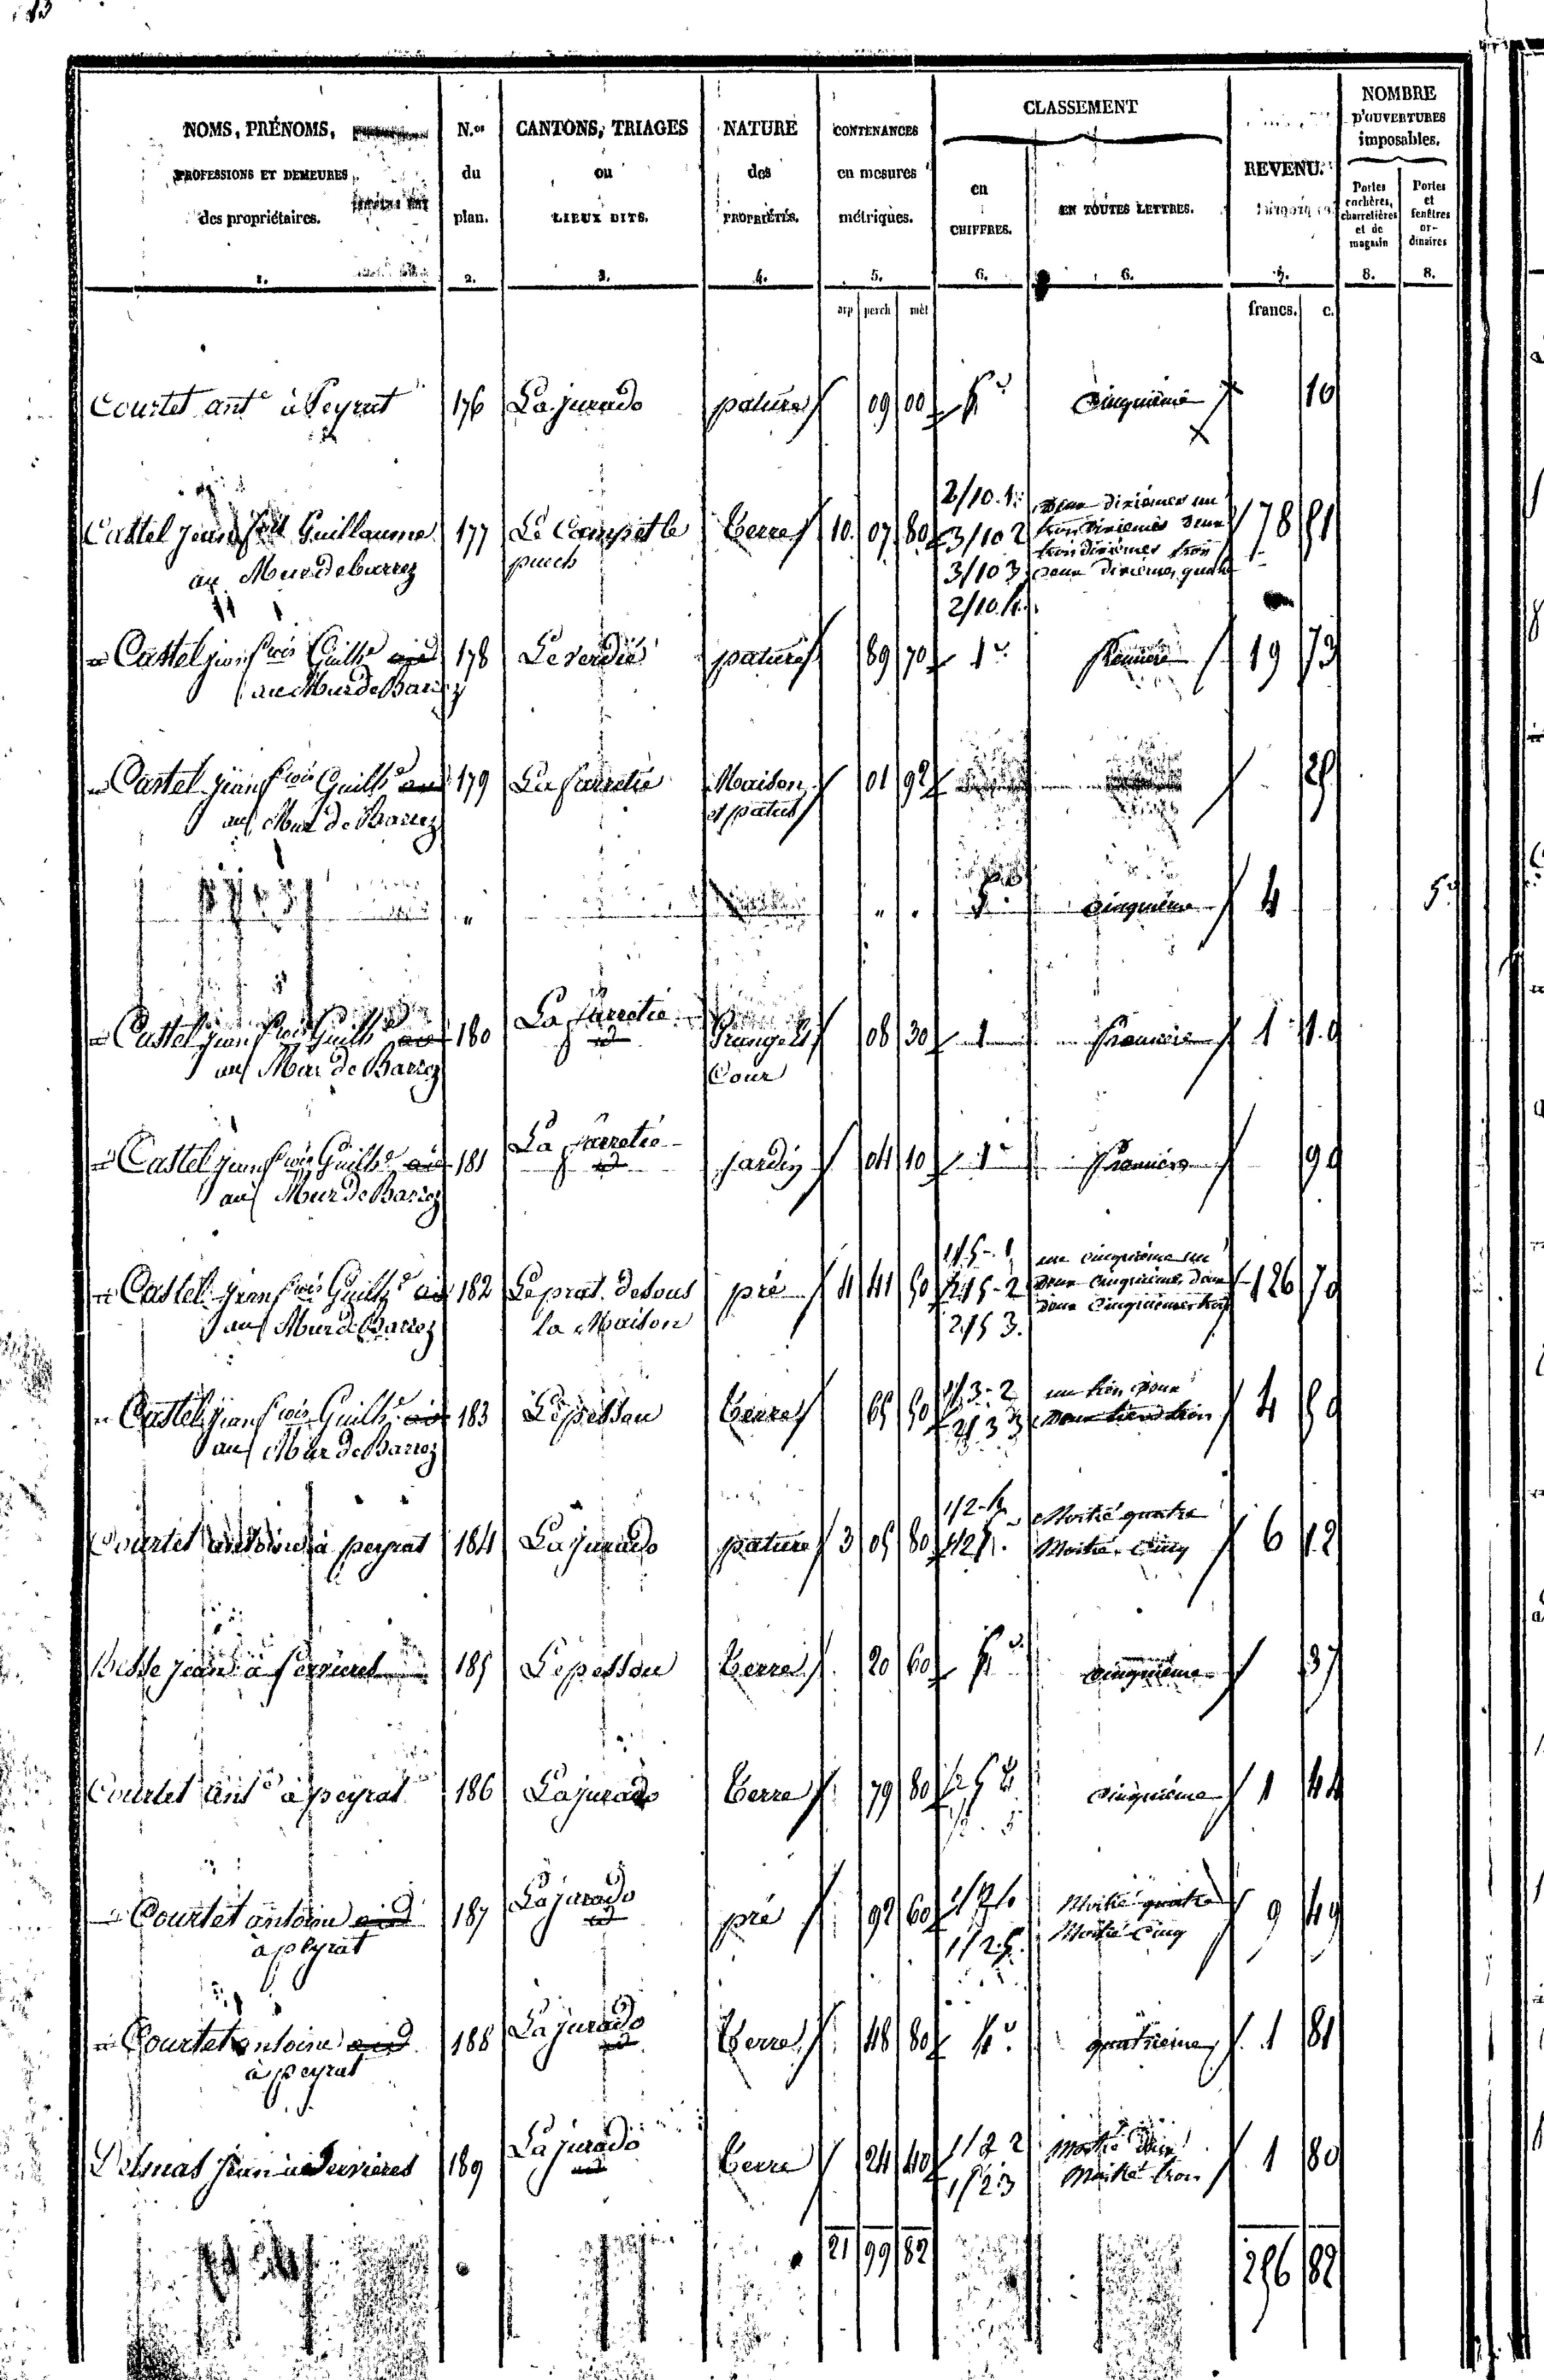 NOMS, PRÉNOMS,
PROFESSIONS ET DEMEURES
des propriétaires.
1.
N.os
du
plan.
2.
CANTONS, TRIAGES
ou
LIEUX DITS.
3.
NATURE
des
PROPRIÉTÉS.
4.
CONTENANCES
en mesures
métriques.
5.
arp perch mèt
CLASSEMENT
en
CHIFFRES.
6.
EN TOUTES LETTRES.
6.
REVENU.
7.
francs. c.
NOMBRE
D'OUVERTURES
imposables.
Portes
cochères,
charretières
et de
magasin
8.
Portes
et
fenêtres
or-
dinaires
8.
Courtet ant.e à Peyrat 176 La jurado pature 09 00 5e Cinquième 10
Castel jean Guillaume 177 Le Camp et le Terre 10 07 80 78 51
au Mur de barrez puech
2/10 1 Deux dixièmes un
3/10 2 trois dixièmes deux
3/10 3 trois dixièmes trois
2/10 4 deux dixièmes quatre
Castel jean fcois Guill.e 178 Le verdié pature 89 70 1e Première 19 73
au Mur de Barrez
Castel jean fcois Guill.e 179 La Maison 01 92 25
au Mur de Barrez et patus
" " 5e Cinquième 4 5
Castel jean fcois Guill.e 180 La Grange et 08 30 1 Première 1 10
au Mur de Barrez Cour
Castel jean fcois Guill.e 181 La jardin 04 10 1e Première 90
au Mur de Barrez
Castel jean fcois Guill.e 182 Le prat desous pré 4 41 50 126 70
au Mur de Barrez la Maison
1/5 - 1 un cinquième un
2/5 - 2 deux cinquième deux
2/5 3. deux cinquièmes trois
Castel jean fcois Guill.e 183 Le pessou Terre 65 50 4 50
au Mur de Barrez
1/3 - 2 un tiers deux
2/3 3 Deux tiers trois
Courtet antoine à peyrat 184 La jurado pature 3 05 80 6 12
1/2 - 4 Moitié quatre
1/2 5. Moitié Cinq
Besse jean à ferrieres 185 Le pessou Terre 20 60 5e Cinquième 37
Courtet ant.e à peyrat 186 La jurado Terre 79 80 Cinquième 1 44
Courtet antoine 187 La jurado pré 92 60 9 49
à peyrat
1/2 4 Moitié quatre
1/2 5. Moitié Cinq
Courtet antoine 188 La jurado Terre 48 80 4e quatrieme 1 81
à peyrat
Delmas jean 189 La jurado Terre 24 40 1 80
1/2 2 Moitié deux
1/2 3 Moitié trois
21 99 82 256 82